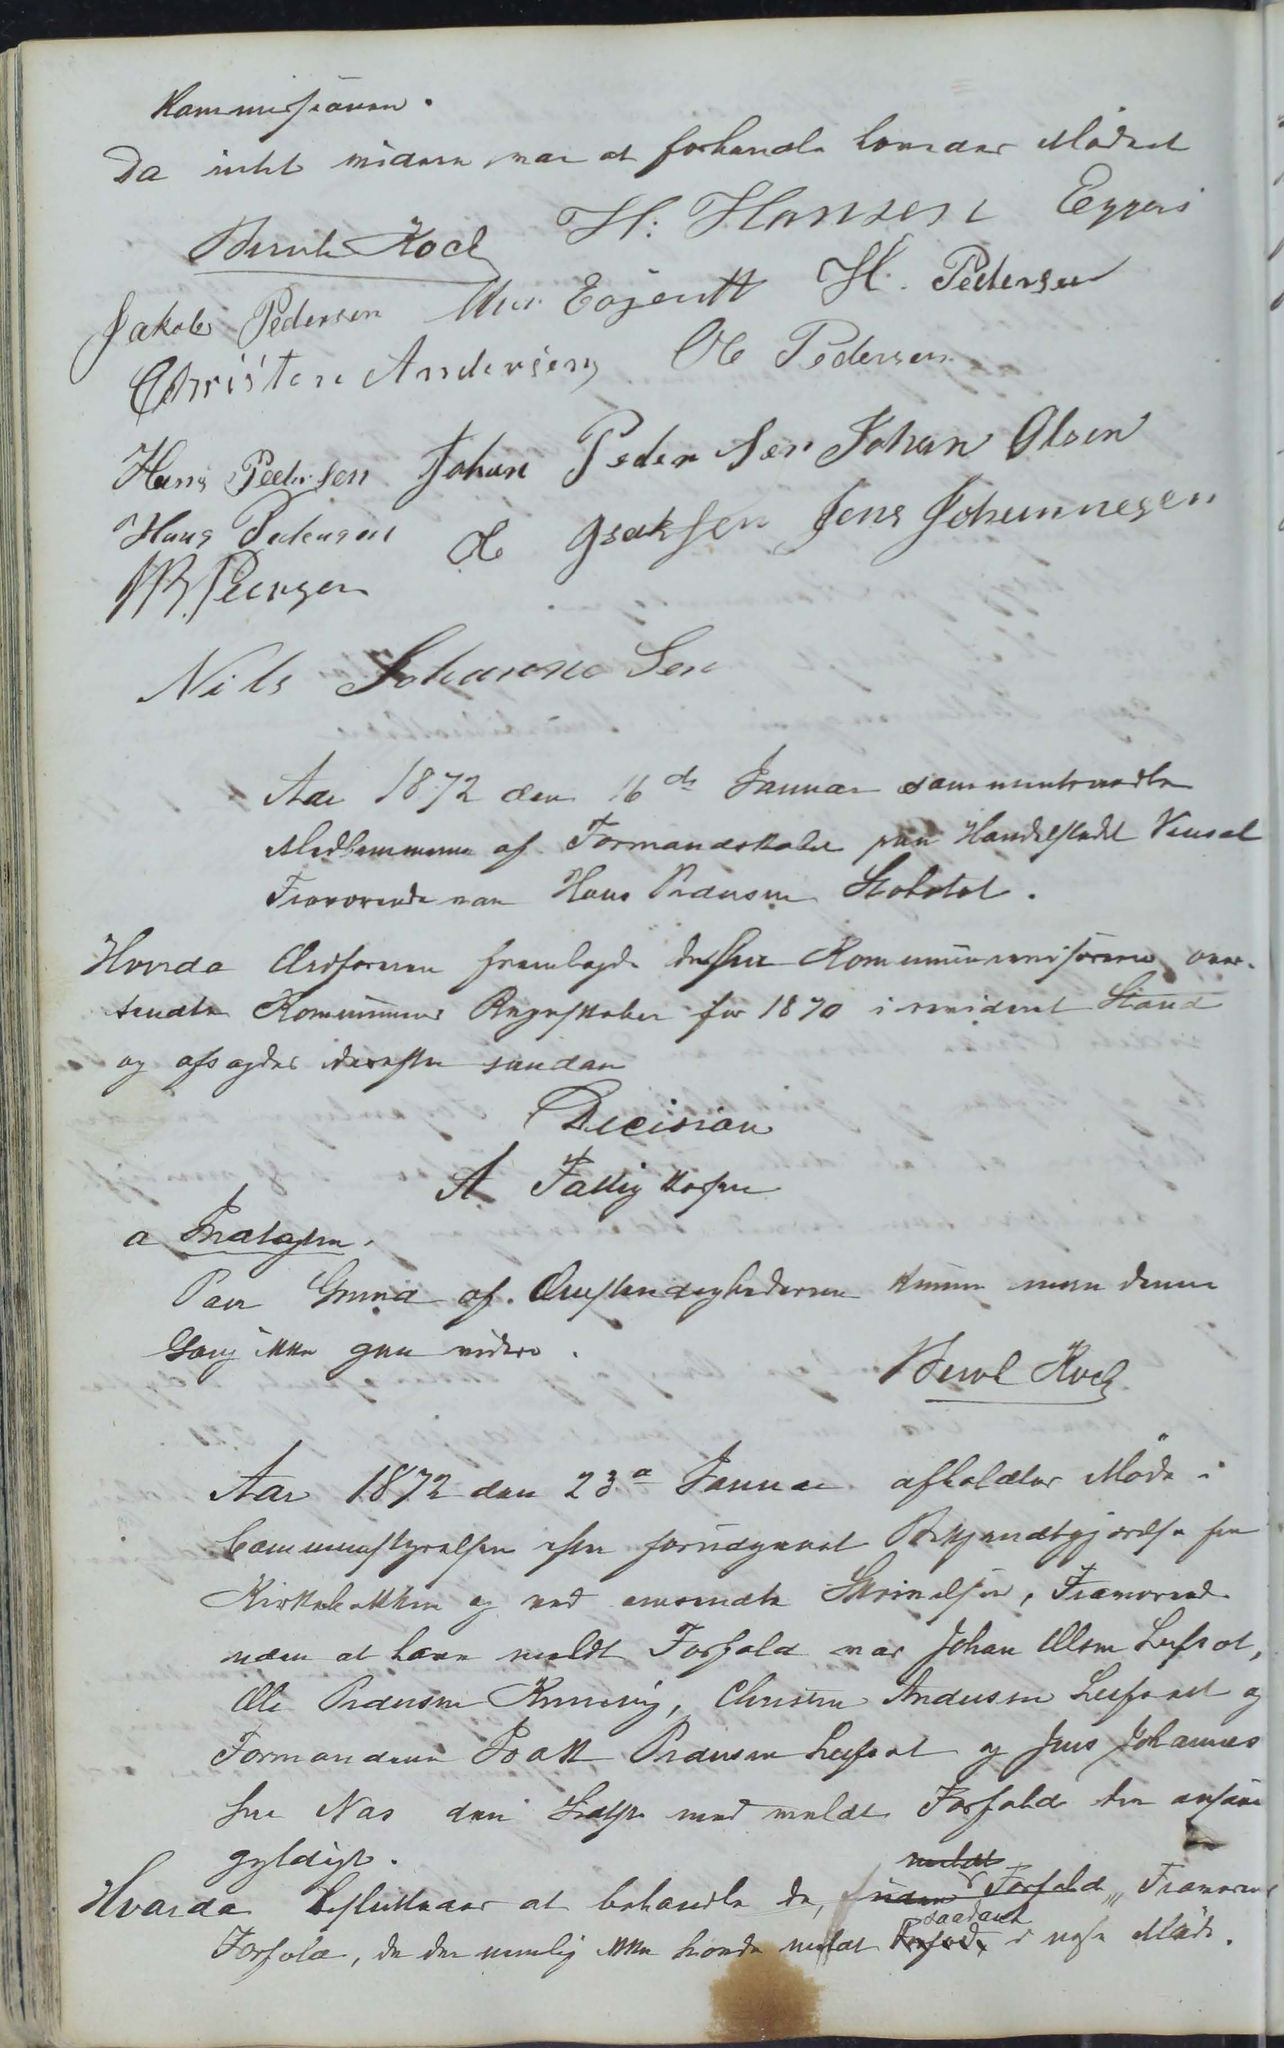 Kommissionen.
Da intet videre var at forhandle hævedes Mödet
Bernh Koch H: Hansen Eggers
Jakob Pedersen H. Pedersen
Christen Andersen Ole Pedersen
Hans Pedersen Johan Peder Sen Johan Olsen
Hans Pedersen Ole Isaksen Jens Johannesen
Nils Johanne Sen
Aar 1872 den 16de Januar sammentraadte
Medlemmerne af Formandskabet paa Handelstedet
Fraværende var Hans Pedersen
Hvorda Ordføreren fremlagde de fra Kommunerevisoren over-
sendte Kommunens Regnskaber for 1870 i revideret Stand
og afsagdes derefter saadan
Decision
A Fattigkassen
a Indtægten.
Paa Grund af Omstændighederne kunne man denne
Gang ikke gaa videre.
Bernh Koch
Aar 1872 den 23de Januar afholdtes Möde i
Communestyrelsen efter forudgaaet Bekjendtgjørelse fra
Kirkebakken og ved omsendte Skrivelser, Fraværende
uden at have meldt Forfald var Johan Olsen
Ole Pedersen Christen Andersen og
Formændene Pedersen og Jens Johannes
sen Næs den sidste med meldt Forfald der ansaaes
gyldigt.
meldt
Hvorda Besluttedes at behandle de, uden Forfald, Fraværendes
saadant
Forfald, da der nemlig ikke havdes meldt Forfald, i næste Möde.